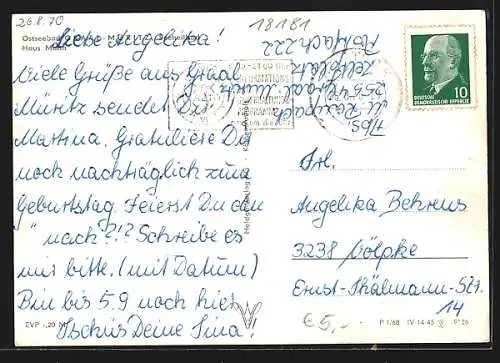 26.8.70
18181
Ostseebad
Haus
Liebe Angelika!
Viele Grüße aus Graal
Müritz sendet Dir
Martina. Gratuliere Dir
noch nachträglich zum
Geburtstag. Feierst Du den
"nach?!? Schreibe es
mir bitte. (mit Datum)
Bin bis 5.9 noch hier
Tschüs Deine Tina!
EVP -,20 M
Abs.
M.
2554 Graal Müritz
Zeltplatz
Postfach 222
INFORMATIONS
DEUTSCHE
DEMOKRATISCHE REPUBLIK
10
Frl.
Angelika Behrens
3238 Völpke
Ernst-Thälmann-Str.
14
€ 5,-
P 1/68 IV-14-45 9126